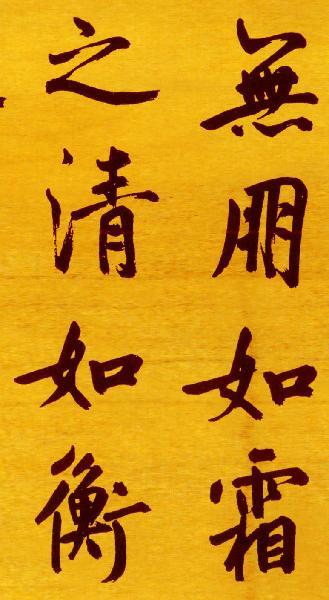 無朋如霜
之清如衡